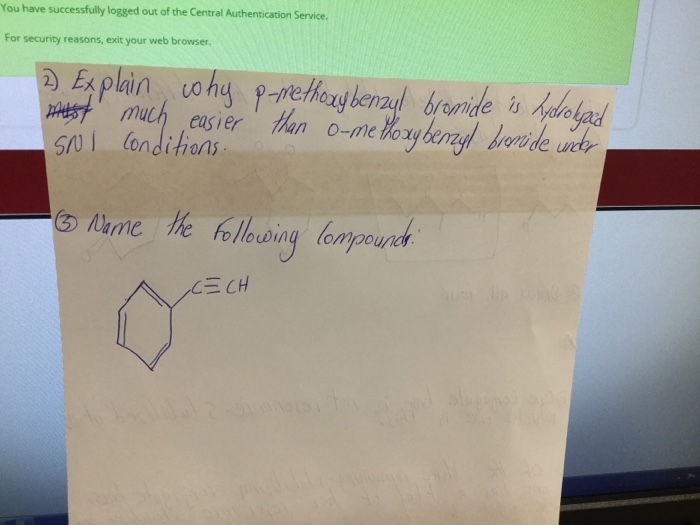 You have successfully logged out of the Central Authentication Service.
For security reasons, exit your web browser.
2) Explain why p-methoxybenzyl bromide is hydrolyzed
much easier than o-methoxybenzyl bromide under
SN1 Conditions.
③ Name the following Compounds:
C≡CH